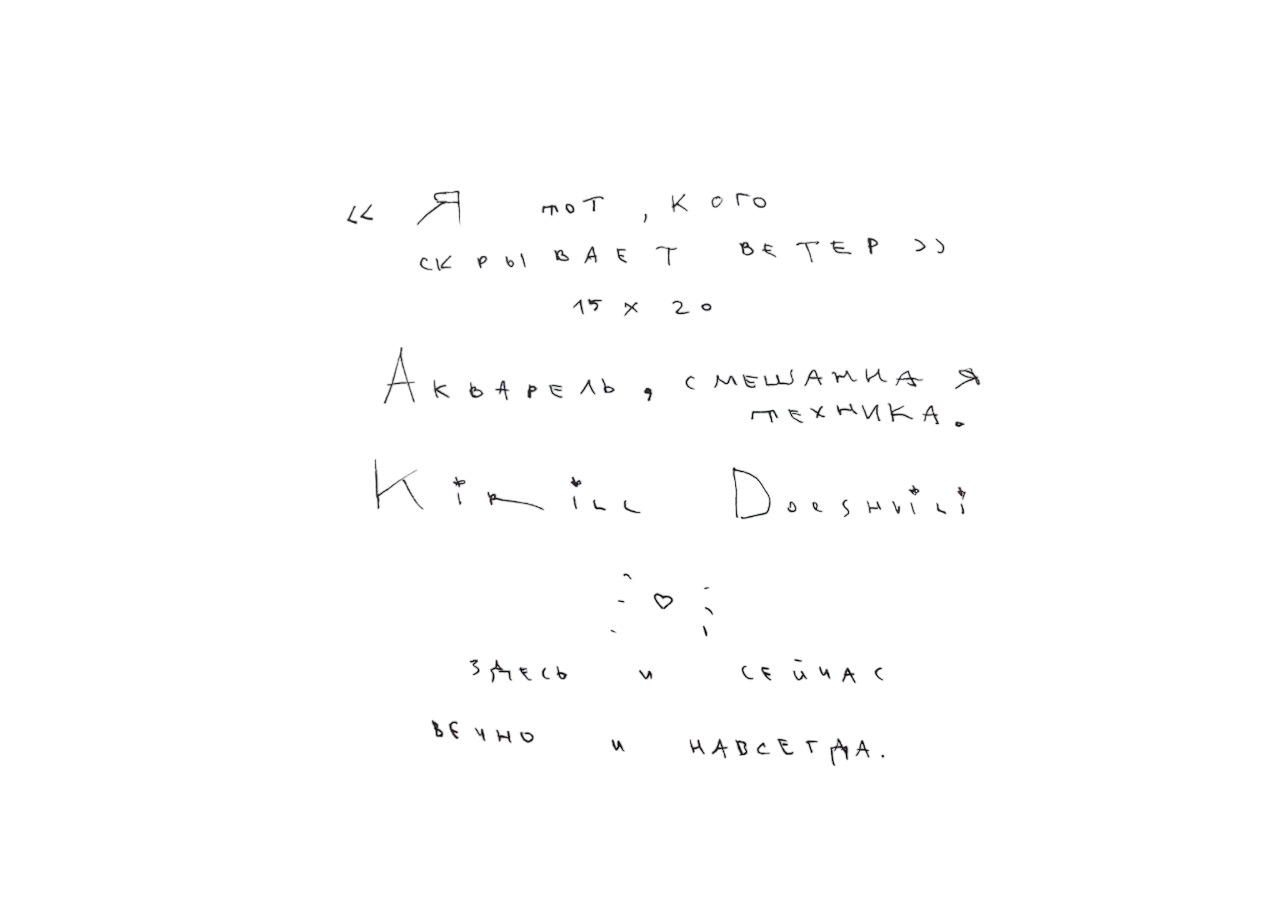 « Я тот, кого
скрывает ветер»
15 x 20
Акварель, смешанная
техника.
Kirill Doeshvili
здесь и сейчас
вечно и навсегда.